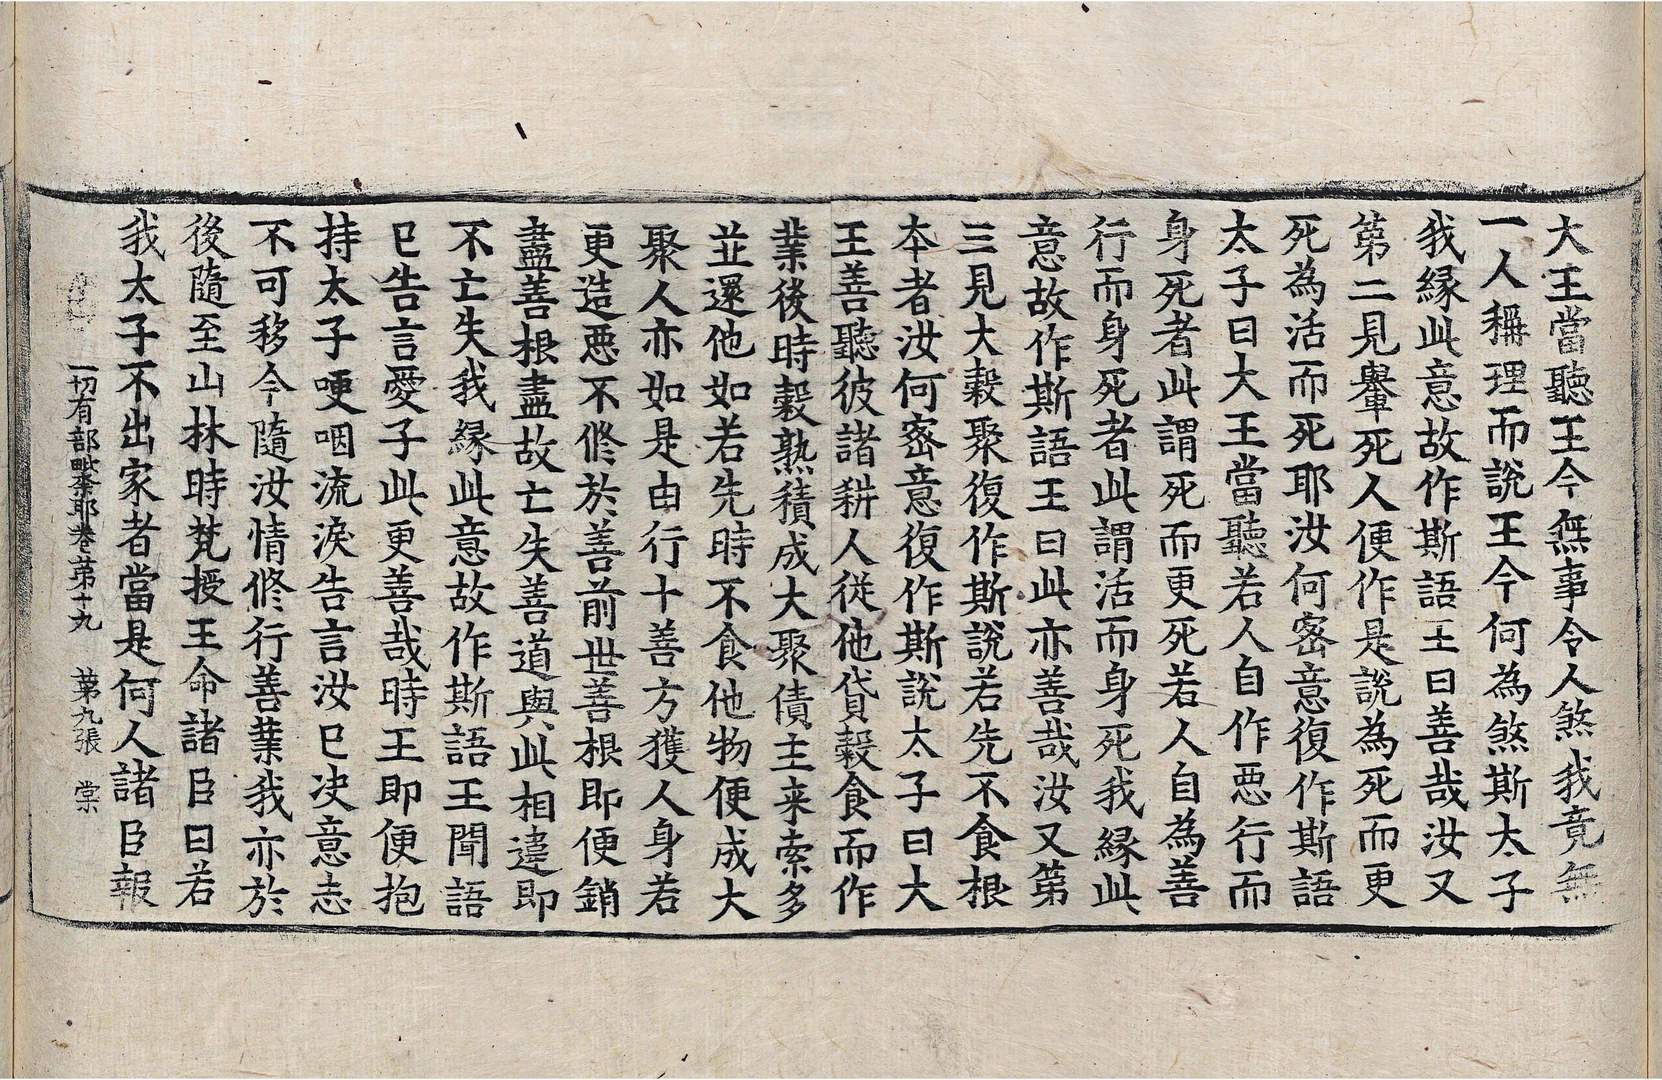 大王當聽王今無事令人煞我竟無
一人稱理而説王今何為煞斯太子
我縁此意故作斯語王曰善哉汝又
第二見轝死人便作是説為死而更
死為活而死耶汝何密意復作斯語
太子曰大王當聽若人自作悪行而
身死者此謂死而更死若人自為善
行而身死者此謂活而身死我縁此
意故作斯語王曰此亦善哉汝又第
三見大穀聚復作斯説若先不食根
本者汝何密意復作斯説太子曰大
王善聽彼諸耕人従他貸穀食而作
業後時穀熟積成大聚債主来索多
並還他如若先時不食他物便成大
聚人亦如是由行十善方獲人身若
更造悪不修於善前世善根即便銷
盡善根盡故亡失善道與此相違即
不亡失我縁此意故作斯語王聞語
已告言愛子此更善哉時王即便抱
持太子哽咽流淚告言汝已決意志
不可移今隨汝情修行善業我亦於
後隨至山林時梵授王命諸臣曰若
我太子不出家者當是何人諸臣報
一切有部毗奈耶卷第十九 第九張 棠